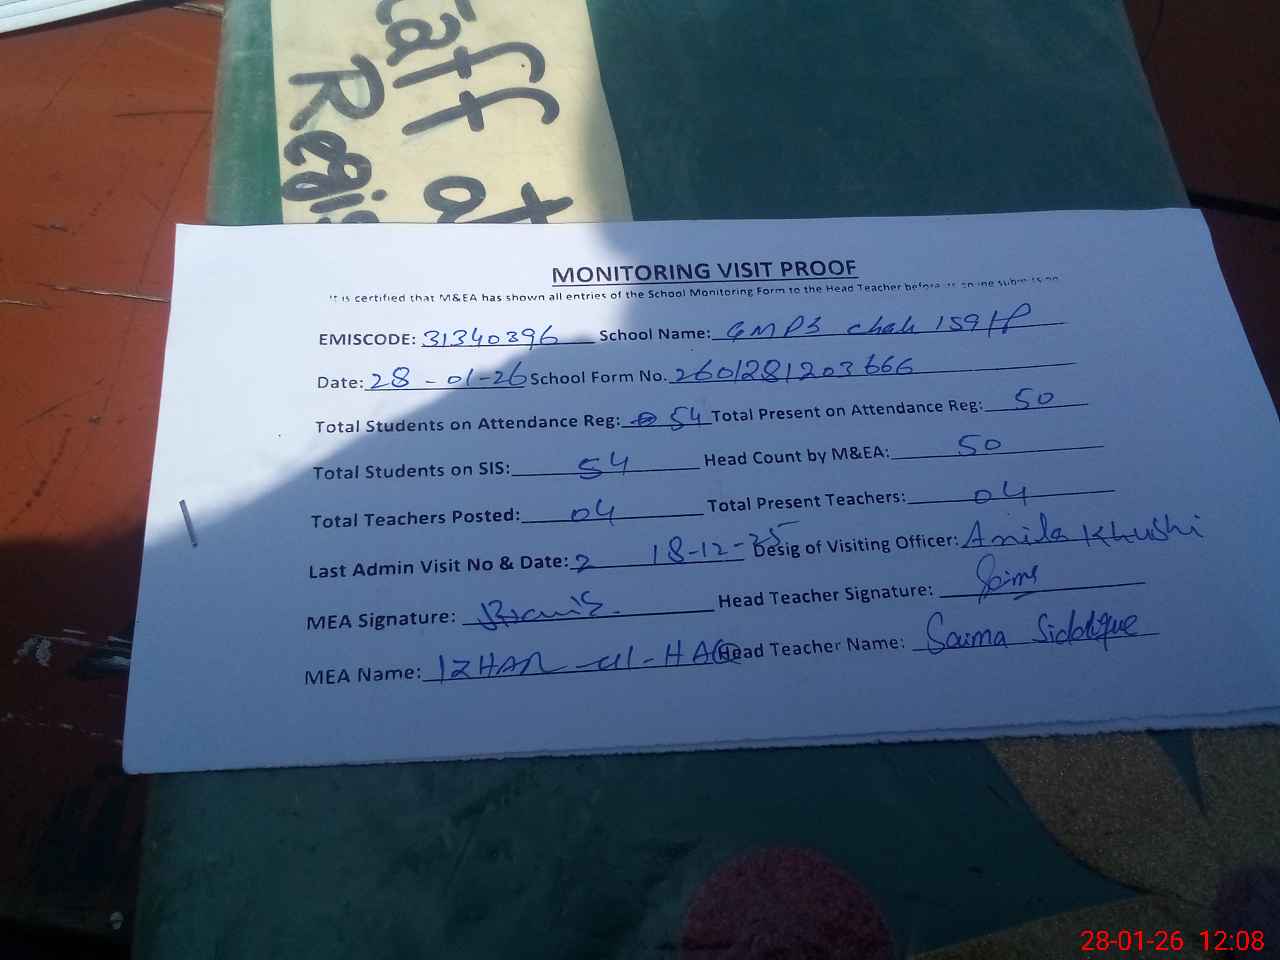 Staff at
Regis
MONITORING VISIT PROOF
It is certified that M&EA has shown all entries of the School Monitoring Form to the Head Teacher before its online submission
EMISCODE: 31340396 School Name: GMPS chak 159 HP
Date: 28-01-26 School Form No. 2601281203666
Total Students on Attendance Reg: 54 Total Present on Attendance Reg: 50
Total Students on SIS: 54 Head Count by M&EA: 50
Total Teachers Posted: 04 Total Present Teachers: 04
Last Admin Visit No & Date: 2 18-12-25 Desig of Visiting Officer: Anila Khushi
MEA Signature: Head Teacher Signature: Saima
MEA Name: IZHAR-ul-HAQ Head Teacher Name: Saima Siddique
28-01-26 12:08